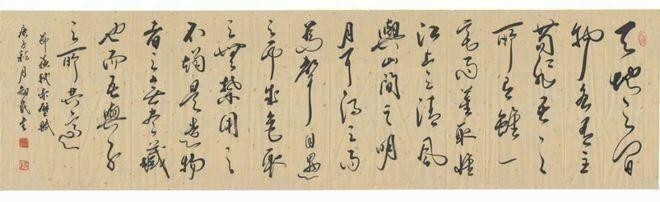 天地之間
物各有主
苟非吾之
所有雖一
毫而莫取惟
江上之清風
與山間之明
月耳得之而
為聲目遇
之而成色取
之無禁用之
不竭是造物
者之無盡藏
也而吾與子
之所共適
節蘇軾赤壁賦
庚子秋月